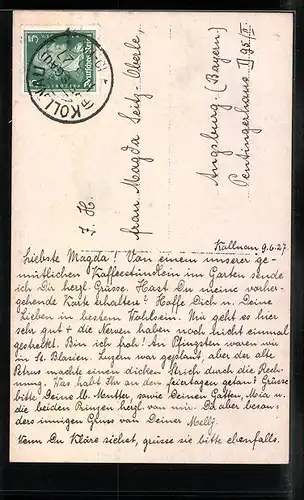 5
Deutsches Reich
KOLLNAU
I. H.
Frau Magda Seitz-Oberle,
Augsburg. (Bayern)
Peutingerhaus D 95/II.
Kollnau 9.6.27.
Liebste Magda! Von einem unserer ge-
mütlichen Kaffeestündlein im Garten sende
ich Dir herzl. Grüsse. Hast Du meine vorher-
gehende Karte erhalten? Hoffe Dich u. Deine
Lieben in bestem Wohlsein. Mir geht es hier
sehr gut & die Nerven haben noch nicht einmal
gestreikt. Bin ich froh! An Pfingsten waren wir
in St. Blasien. Luzern war geplant, aber der alte
Petrus machte einen dicken Strich durch die Rech-
nung. Was habt Ihr an den Feiertagen getan? Grüsse
bitte Deine lb. Mutter, sowie Deinen Gatten, u.
die beiden herzl. von mir. Dir aber beson-
ders innigen Gruss von Deiner Melly.
Wenn Du Kläre siehst, grüsse sie bitte ebenfalls.